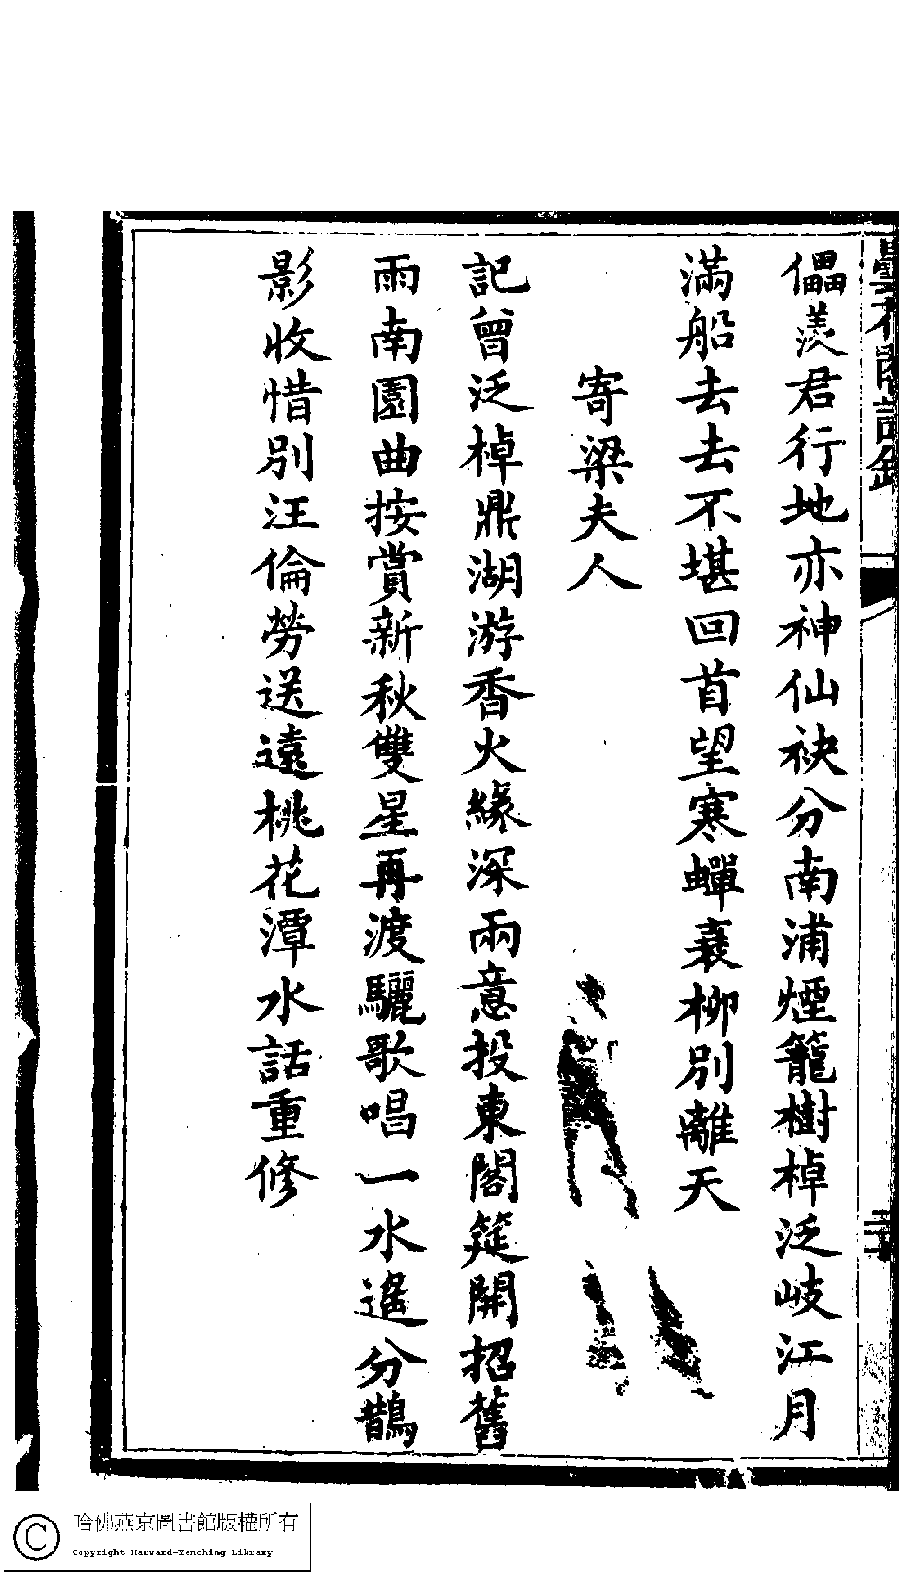 儡羨君行地亦神仙袂分南浦煙籠樹棹泛岐江月
滿船去去不堪回首望寒蟬衰柳別離天
寄梁夫人
記曾泛棹鼎湖游香火緣深兩意投東閣筵開招舊
雨南園曲按賞新秋雙星再渡驪歌唱一水遙分鵲
影收惜別汪倫勞送遠桃花潭水話重修
哈佛燕京圖書館版權所有
Copyright Harvard-Yenching Library